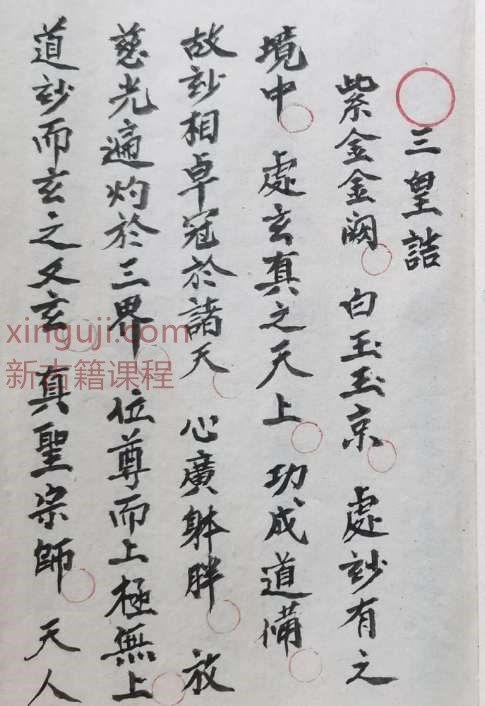 三皇誥
紫金金阙 白玉玉京 處玅有之
境中 處玄真之天上 功成道俻
故玅相卓冠於諸天 心廣躰胖 放
慈光遍灼於三界 位尊而上極無上
道玅而玄之又玄 真聖宗師 天人
xinguji.com
新古籍课程